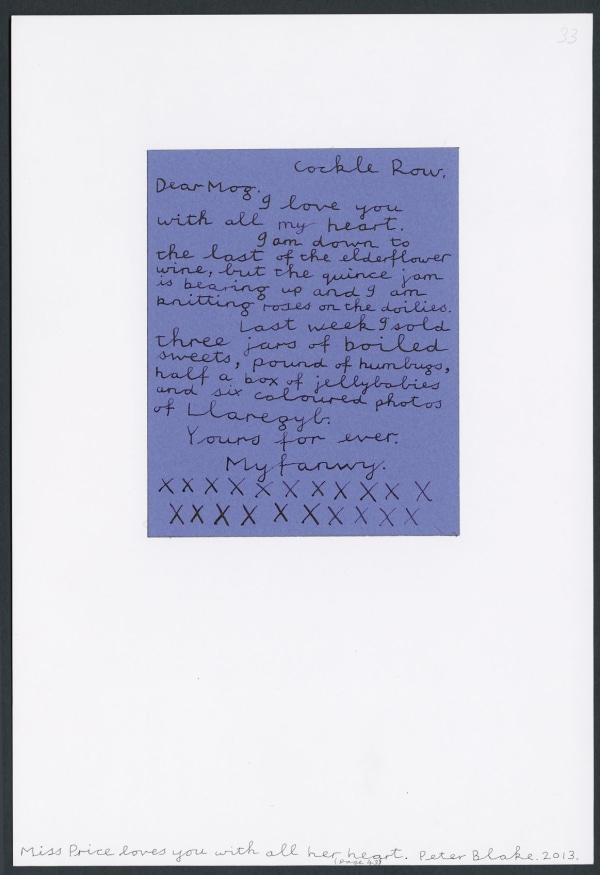 33
Cockle Row.
Dear Mog.
I love you
with all my heart.
I am down to
the last of the elderflower
wine, but the quince jam
is bearing up and I am
knitting roses on the doilies.
Last week I sold
three jars of boiled
sweets, pound of humbugs,
half a box of jellybabies
and six coloured photos
of Llaregyb.
Yours for ever.
Myfanwy.
X X X X X X X X X X X
X X X X X X X X X X
Miss Price loves you with all her heart. Peter Blake. 2013.
(page 43)